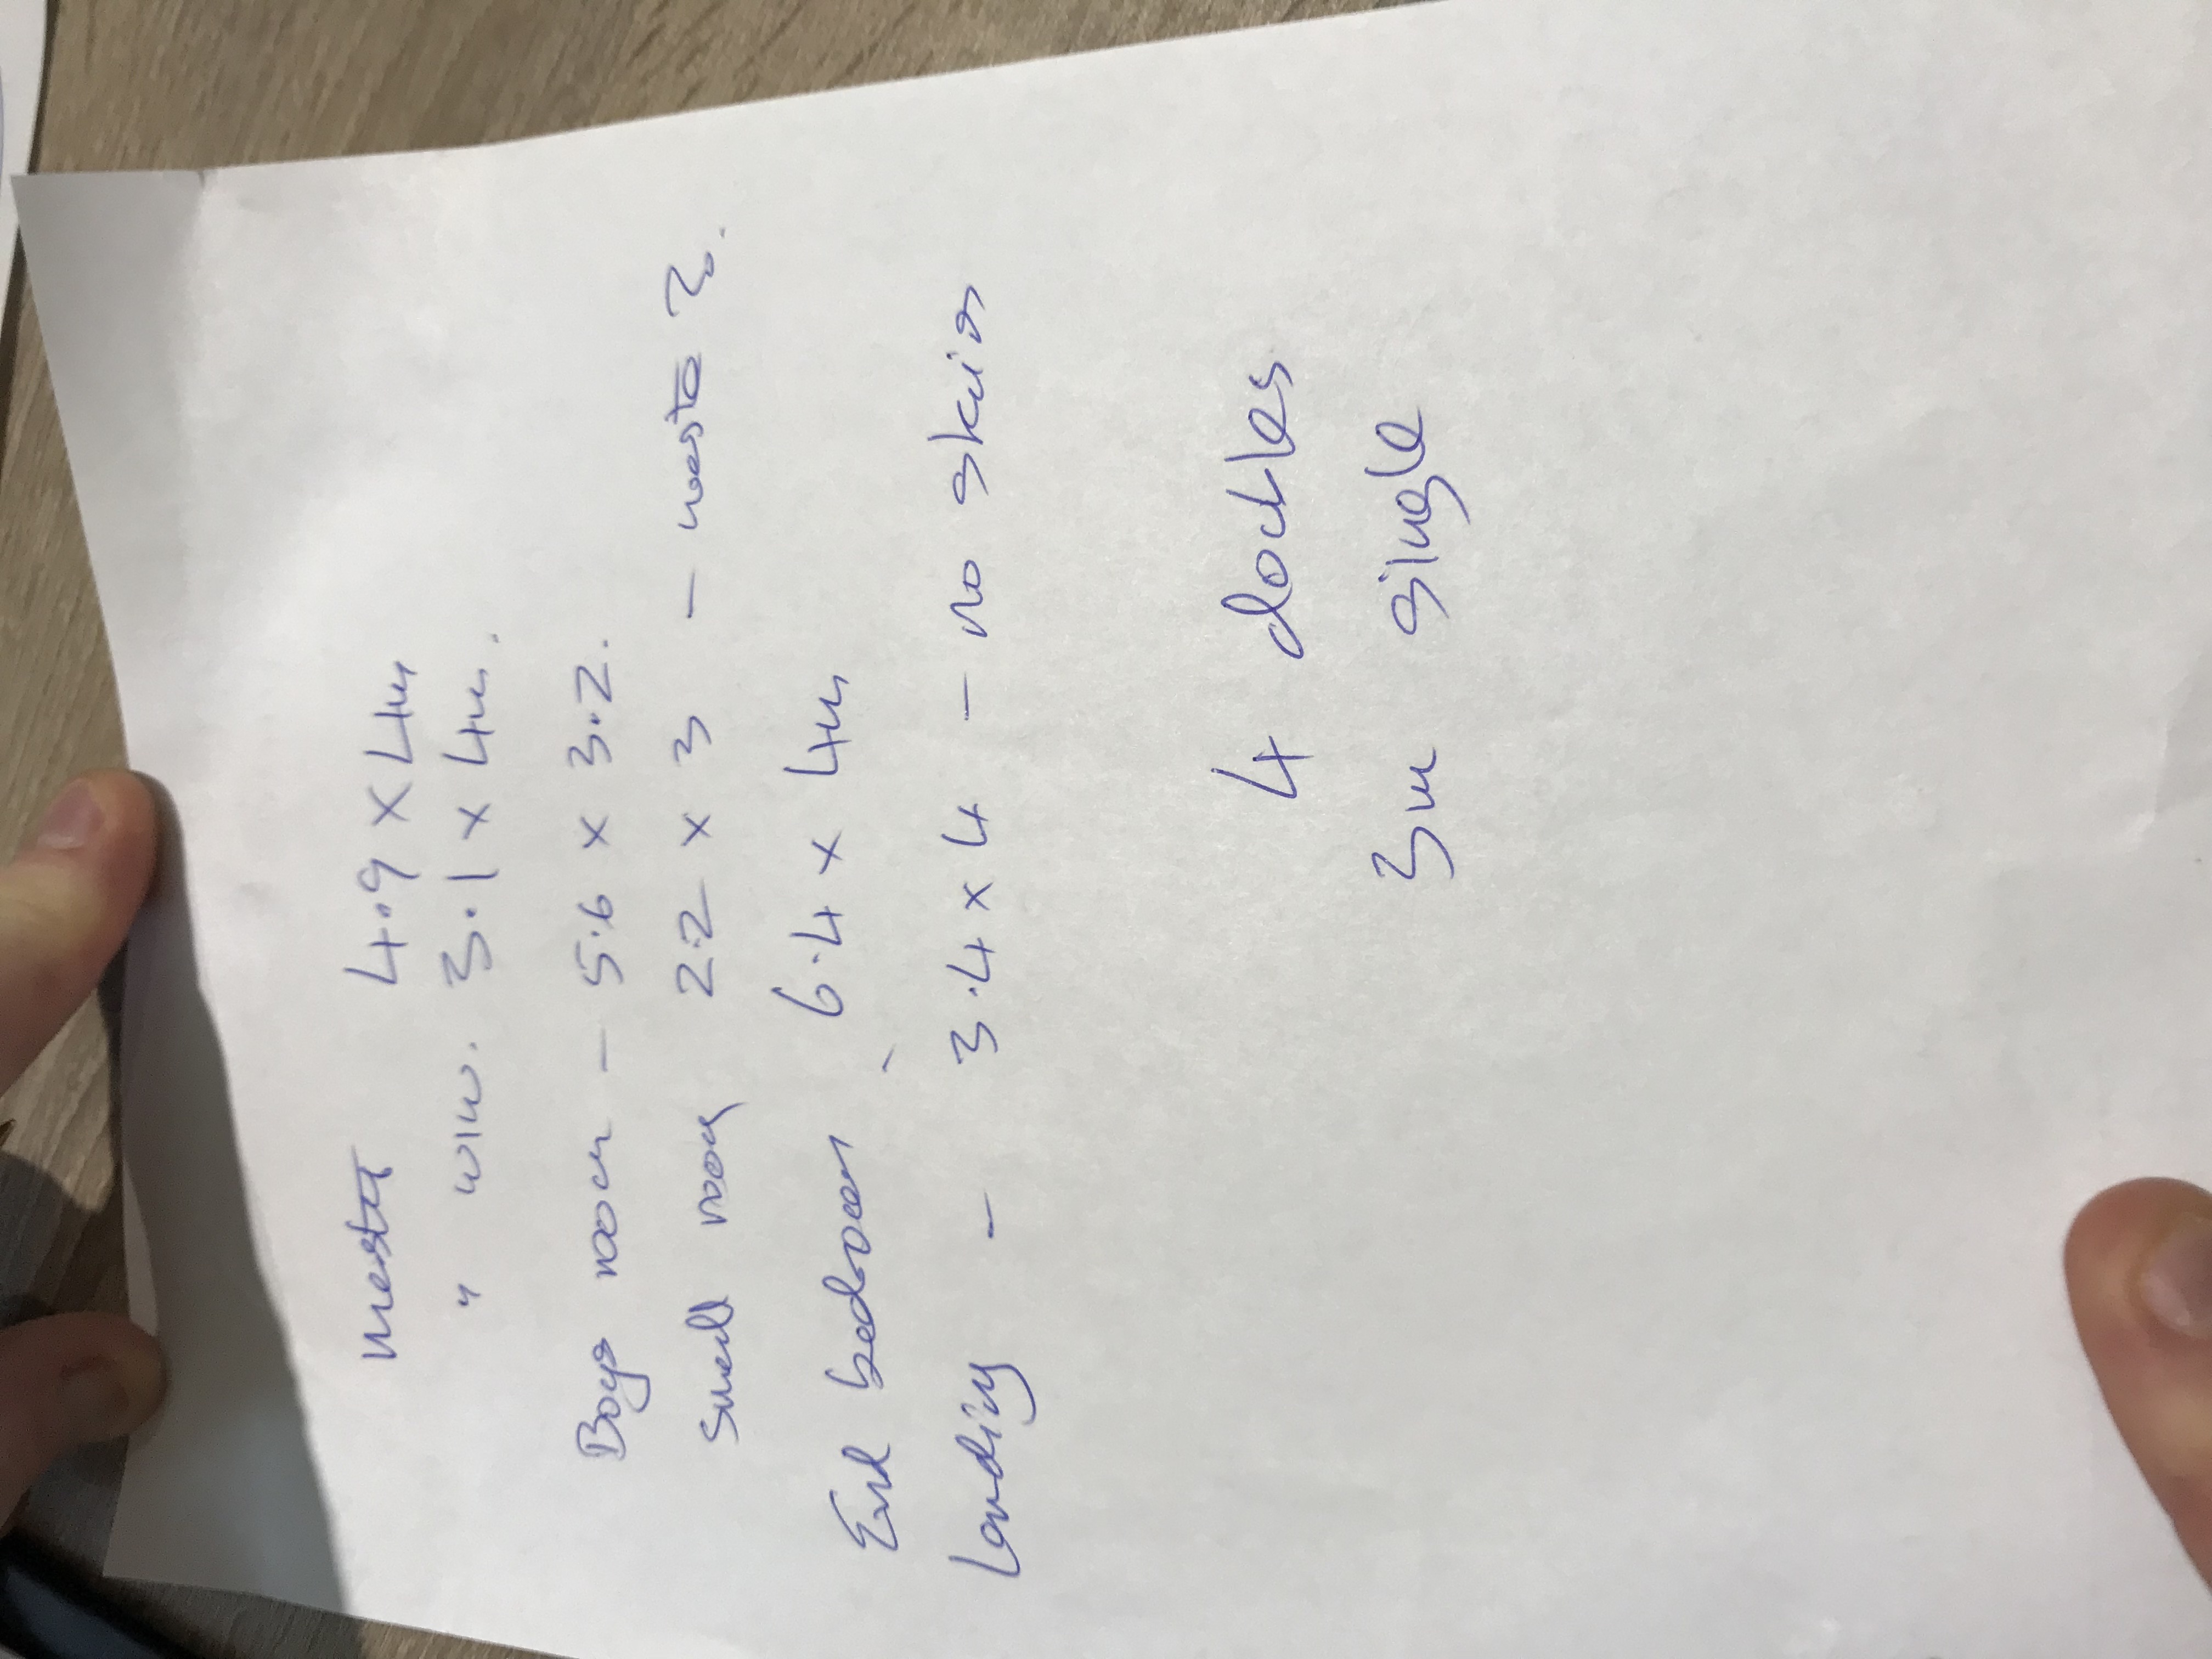 Master 4.9 x 4m
" win. 3.1 x 4m.
Boys room - 5.6 x 3.2.
Small room 2.2 x 3 - waste ?
End bedroom 6.4 x 4m
Landing - 3.4 x 4 - no
4 doubles
3m single